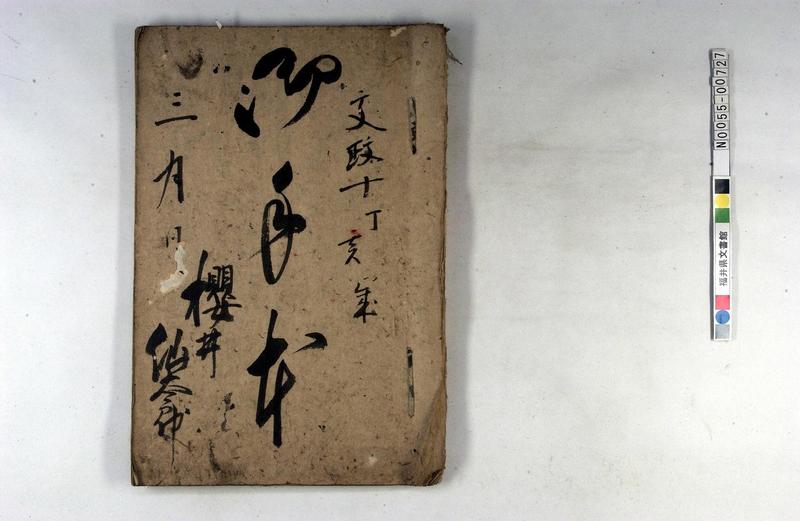 文政十丁亥歳
御手本
三月日
櫻井
仙太郎
N0055-00727
福井県文書館